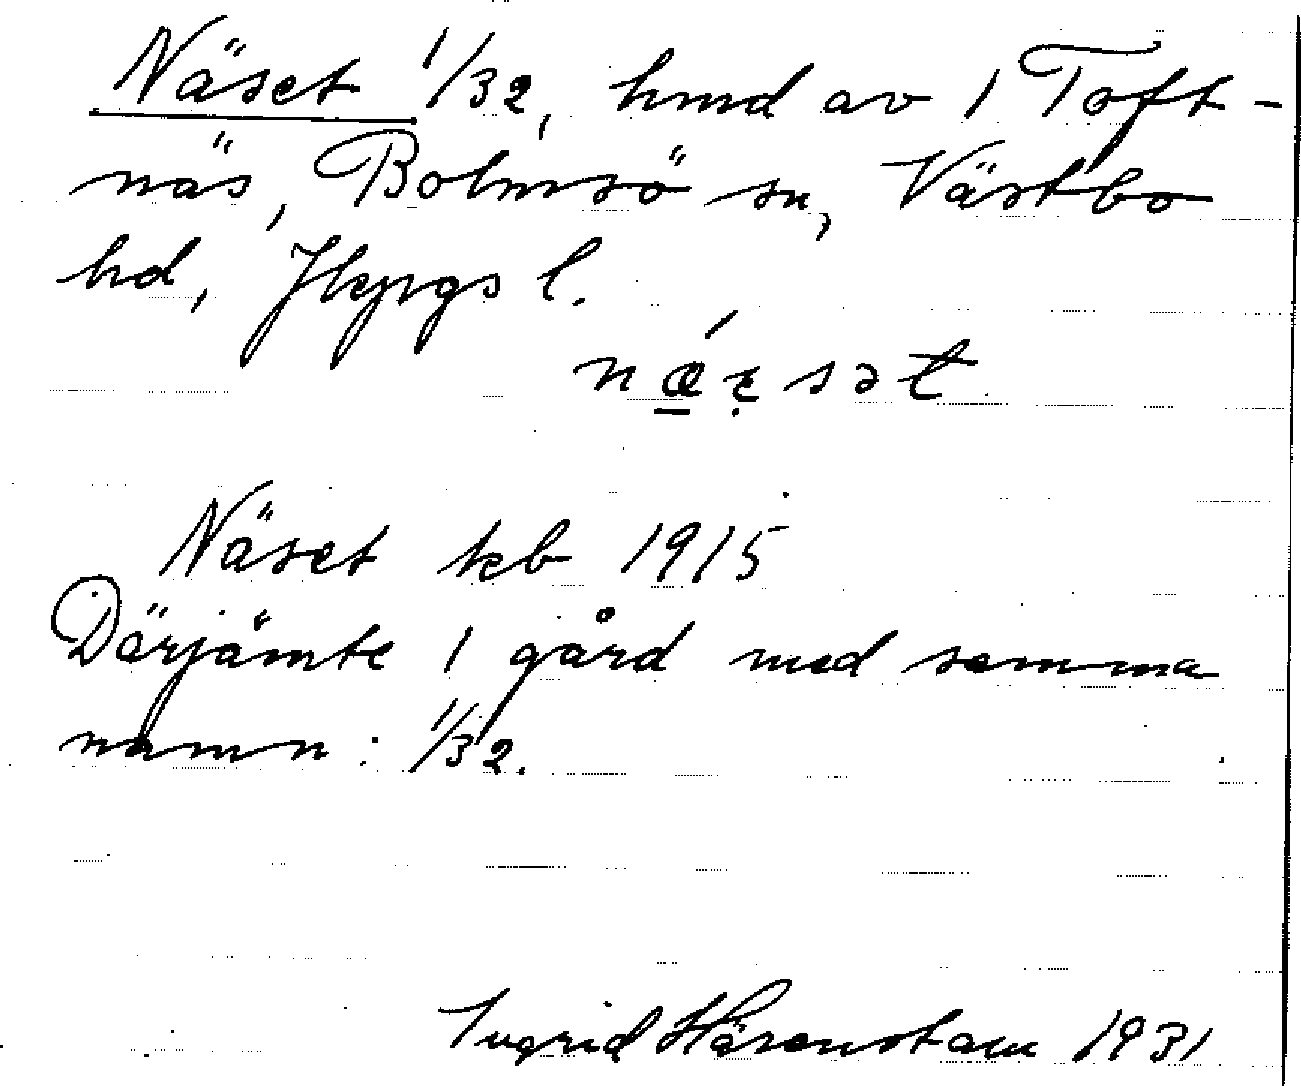 Näset 1/32, hmd av 1 Toft-
näs, Bolmsö sn, Västbo
hd, Jkpgs l.
Näset kb 1915
Därjämte 1 gård med samma
namn: 1/32.
Ingrid Härenstam 1931